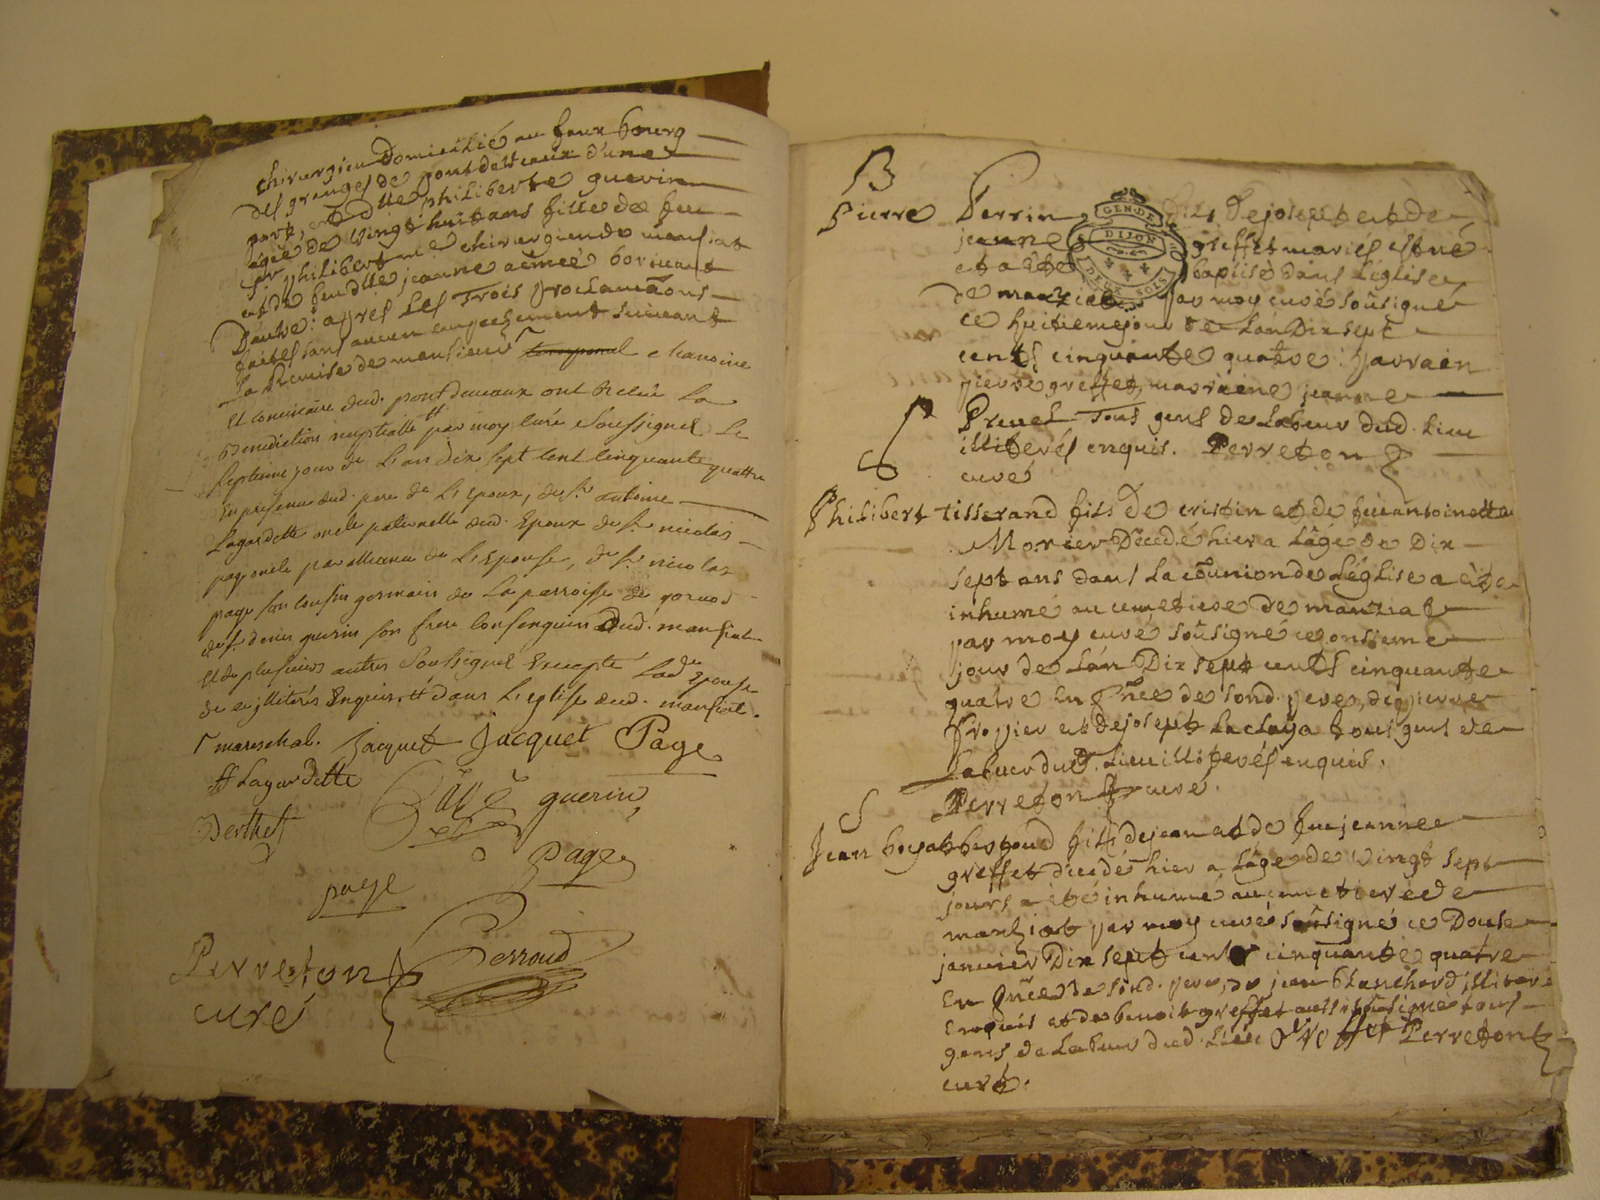 chirurgien Domicilié au faux bourg
des granges de pontdevaux d'une
part, et dlle philiberte guerin
agée de vingt huit ans fille de feu
sr philibert chirurgien de mansiat
et de feu dlle jeanne aimeé
D'autre: apres Les Trois proclamaõns
faites sans aucun empechement suivant
La Remise de monsieur chanoine
et dud. pontdevaux ont Receu La
Benediction nuptialle par moy Curé Soussigné Le
septieme jour de L'an Dix sept cent cinquante quattre
En presence dud. pere de L'Epoux, du sr antoine
Lagardette oncle paternelle dud. Epoux du sr nicolas
page oncle par alliance de L'Epouse, du sr nicolas
page son cousin germain de La parroisse de gorrevod
du sr denis guerin son frere consanguin dud. mansiat
et de plusieurs autres Soussignés Excepté Lad. Epouse
illiterés Enquis. dans L'eglise dud. mansiat.
mareschal. Jacquet Jacquet Page
Lagardette guerin
Berthet
Page
page
Perroud
Perreton
curé
B
Pierre Perrin fils de joseph et de
jeanne greffet mariés est né
et a été baptisé dans L'église
de manziat par moy curé soûsigné
ce huitieme jour de L'an Dix sept
cents cinquante quatre: parrain
pierre greffet, marraine jeanne
Prevel Tous gens de Labeur dud. Lieu
illiterés enquis. Perreton
curé
S
Philibert tisserand fils de cristin et de feue antoinette
Morier Décedé hier a L'age de Dix
sept ans dans La cõmunion de L'église a été
inhumé au cimetiere de manziat
par moy curé soûsigné ce onsieme
jour de L'an Dix sept cents cinquante
quatre En p̃nce de sond. pere, de pierre
et de joseph tous gens de
Labeur dud. Lieu illiterés enquis.
Perreton curé.
S
Jean fils de jean et de feue jeanne
greffet décedé hier a L'age de vingt sept
jours a été inhumé au cimetiere de
manziat par moy curé soûsigné ce Douse
janvier Dix sept cents cinquante quatre
En p̃nce de sond. pere, de jean blanchard illiterés
enquis et de benoit greffet aussi soûsigné tous
gens de Labeur dud. Lieu Greffet Perreton
curé.
GEN. DE DIJON
DEUX SOLS